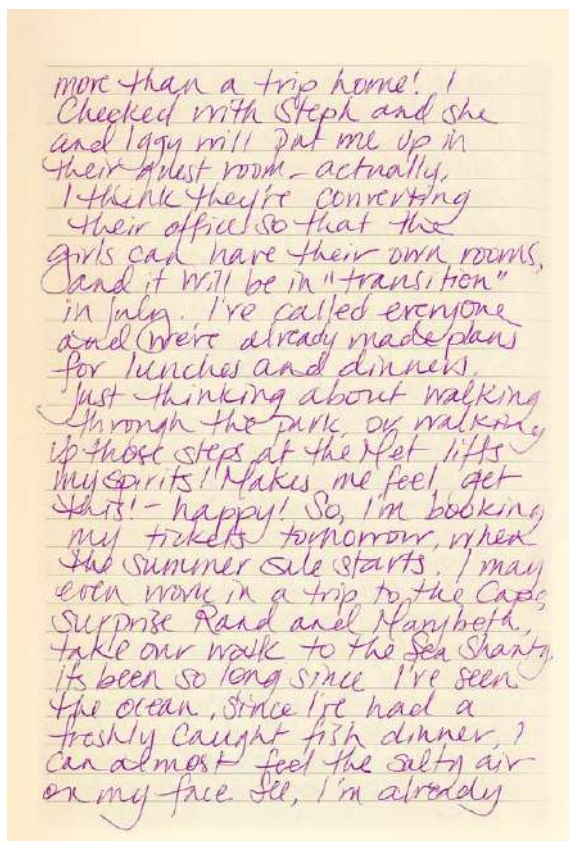 more than a trip home! I
Checked with Steph and she
and Iggy will put me up in
their guest room - actually,
I think they're converting
their office so that the
girls can have their own rooms,
and it will be in "transition"
in July. I've called everyone
and we're already made plans
for lunches and dinners.
Just thinking about walking
through the park, or walking
up those steps at the Met lifts
my spirits! Makes me feel get
this! - happy! So, I'm booking
my tickets tomorrow, when
the summer sale starts. I may
even work in a trip to the Cape,
surprise Rand and Marybeth,
take our walk to the Sea Shanty.
its been so long since I've seen
the ocean, since I've had a
freshly caught fish dinner, I
can almost feel the salty air
on my face See, I'm already